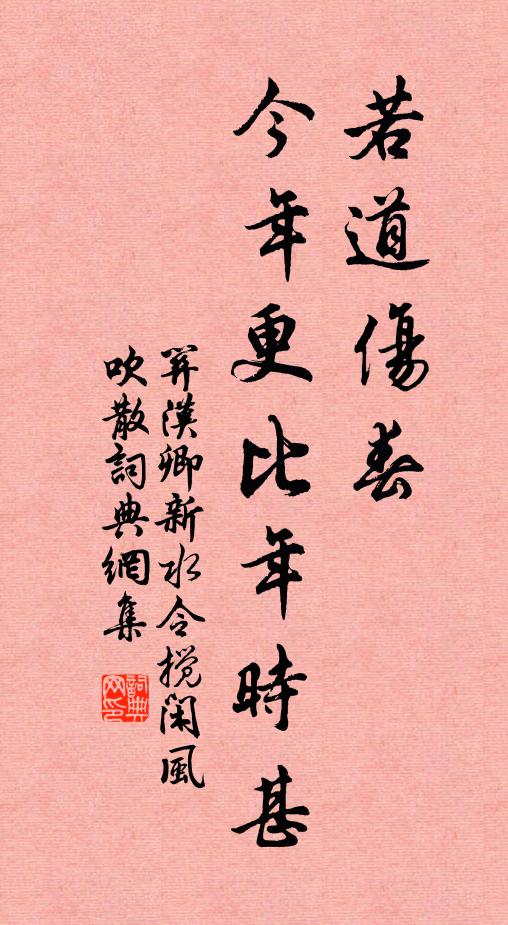 若道傷春
今年更比年時甚
關漢卿新水令攪閑風
吹散詞典網集
詞典網印